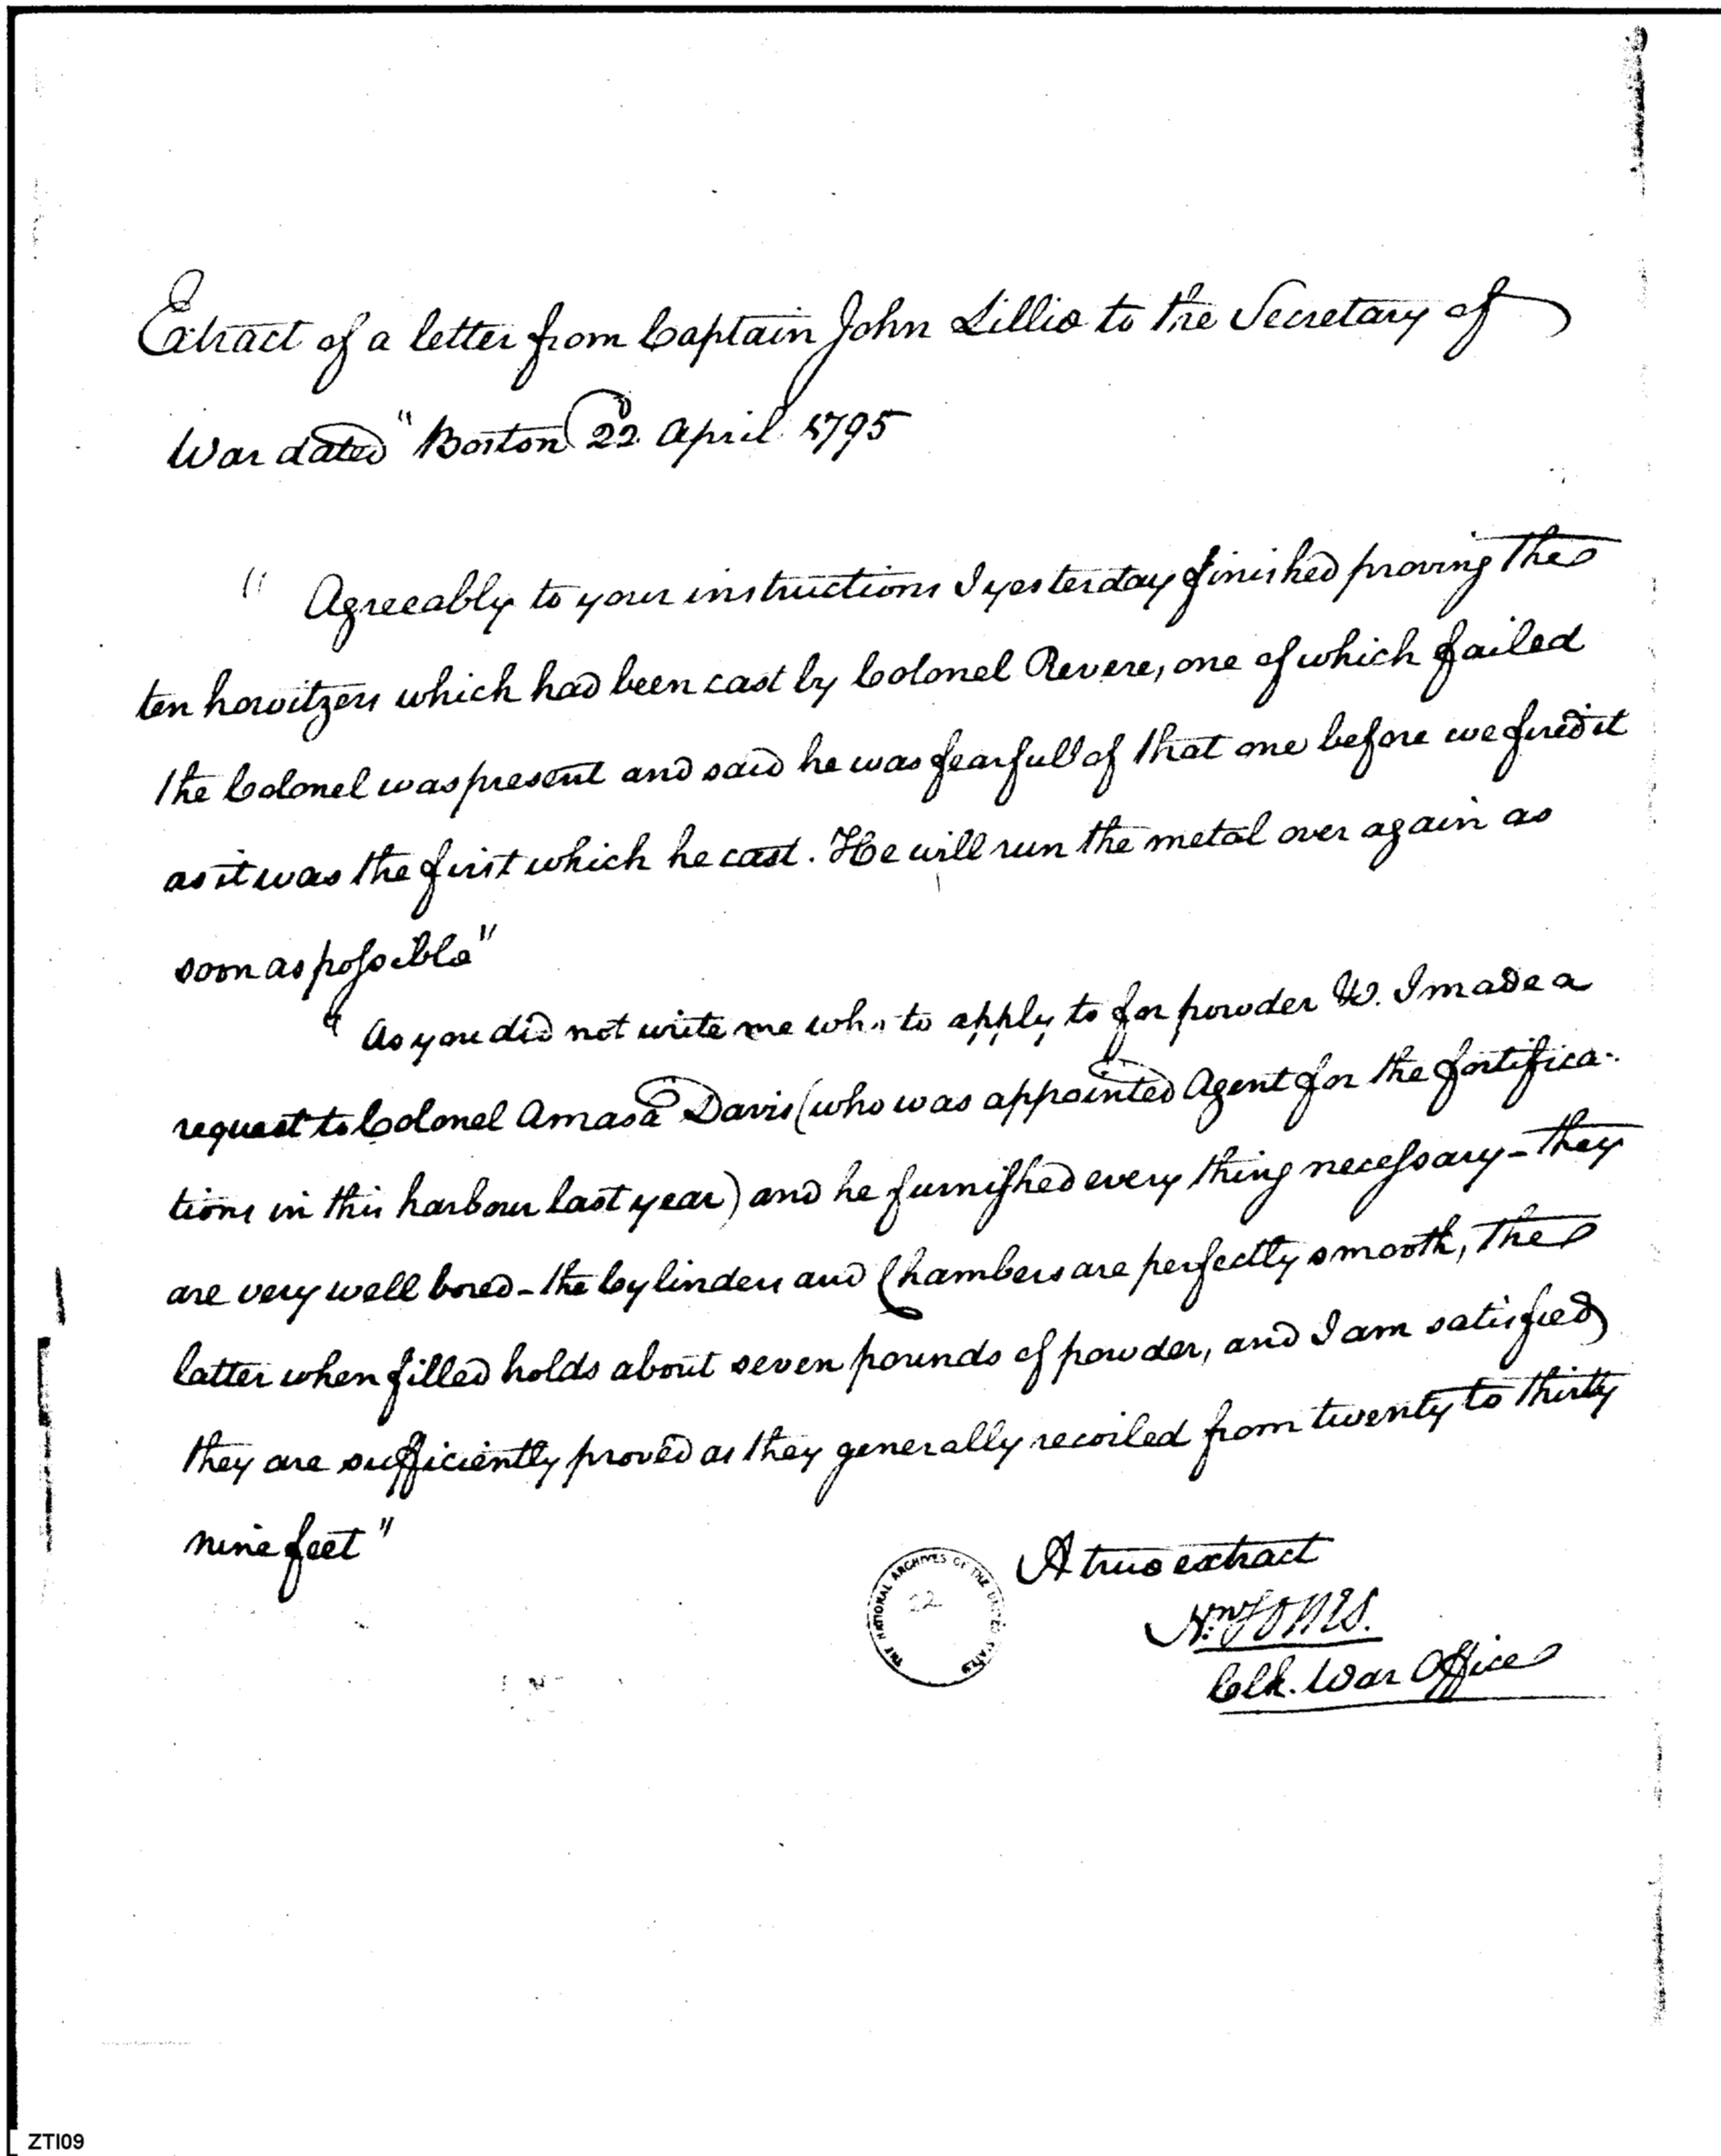 Extract of a letter from Captain John Lillie to the Secretary of
War dated "Boston 22 April 1795
" Agreeably to your instructions I yesterday finished proving the
ten howitzers which had been cast by Colonel Revere, one of which failed
the Colonel was present and said he was fearfull of that one before we fired it
as it was the first which he cast. He will run the metal over again as
soon as possible"
" As you did not write me who to apply to for powder &c. I made a
request to Colonel Amasa Davis (who was appointed Agent for the fortifica-
tions in this harbour last year) and he furnished every thing necessary - they
are very well bored - the Cylinders and Chambers are perfectly smooth, the
latter when filled holds about seven pounds of powder, and I am satisfied
they are sufficiently proved as they generally recoiled from twenty to thirty
nine feet"
A true extract
Jones.
Clk. War Office
THE NATIONAL ARCHIVES OF THE UNITED STATES
22
ZTI09